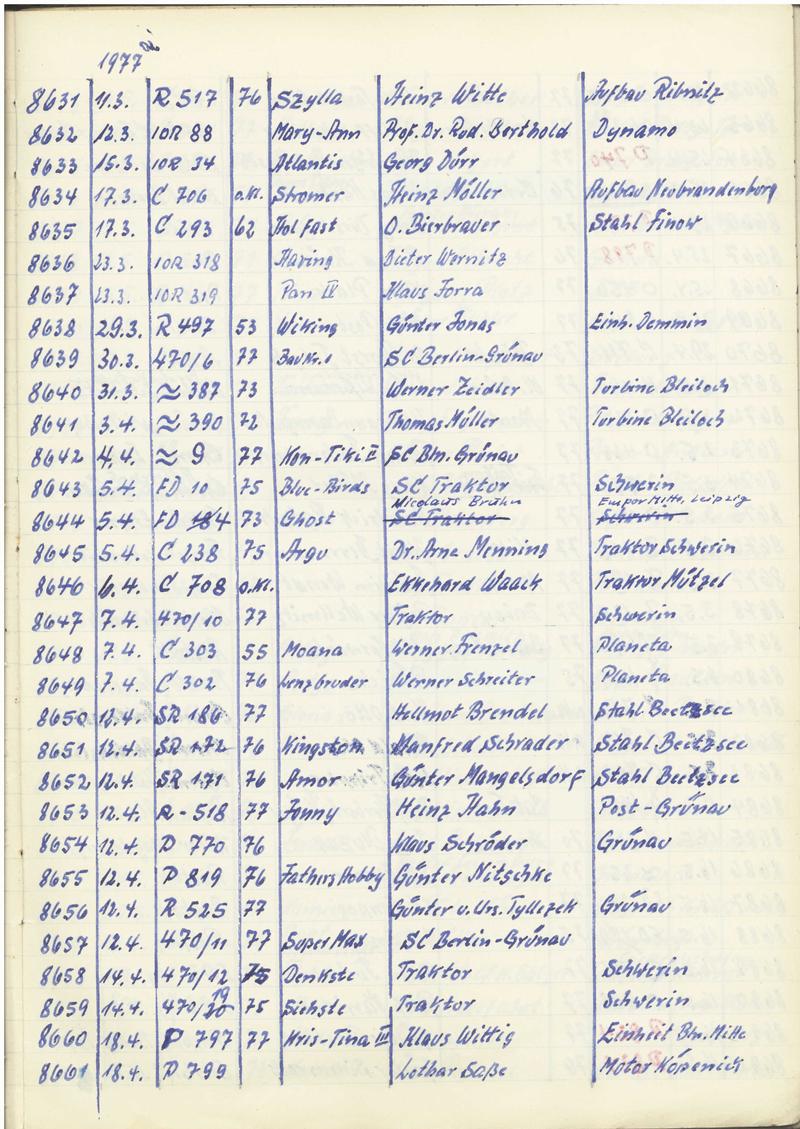 1977
8631 11.3. R 517 76 Szylla Heinz Witte Aufbau Ribnitz
8632 12.3. 10R 88 Mary-Ann Prof. Dr. Rud. Berthold Dynamo
8633 15.3. 10R 34 Atlantis Georg Dürr
8634 17.3. C 706 o.Kl. Stromer Heinz Möller Aufbau Neubrandenburg
8635 17.3. C 293 62 Hol fast O. Bierbrauer Stahl Finow
8636 23.3. 10R 318 Having Dieter Wernitz
8637 23.3. 10R 319 Pan IV Klaus Forra
8638 29.3. R 497 53 Wiking Günter Jonas Einh. Demmin
8639 30.3. 470/6 77 SC Berlin-Grünau
8640 31.3. ≈ 387 73 Werner Zeidler Turbine Bleiloch
8641 3.4. ≈ 390 72 Thomas Müller Turbine Bleiloch
8642 4.4. ≈ 9 77 Kon-Tiki II SC Bln. Grünau
8643 5.4. FD 10 75 Blue-Birds SC Traktor Schwerin
Nicolaus Bruhn Empor Mitte, Leipzig
8644 5.4. FD 184 73 Ghost SC Traktor Schwerin
8645 5.4. C 238 75 Argo Dr. Arne Menning Traktor Schwerin
8646 6.4. C 708 o.Kl. Ekkehard Waack Traktor Mützel
8647 7.4. 470/10 77 Traktor Schwerin
8648 7.4. C 303 55 Moana Werner Frenzel Planeta
8649 7.4. C 302 76 Lenzbruder Werner Schreiter Planeta
8650 12.4. SR 186 77 Hellmot Brendel Stahl Beetzsee
8651 12.4. SR 172 76 Kingston Manfred Schrader Stahl Beetzsee
8652 12.4. SR 171 76 Amor Günter Mangelsdorf Stahl Beetzsee
8653 12.4. R-518 77 Jonny Heinz Hahn Post-Grünau
8654 12.4. P 770 76 Klaus Schröder Grünau
8655 12.4. P 819 76 Fathers Hobby Günter Nitschke
8656 12.4. R 525 77 Günter u. Urs. Tyllezek Grünau
8657 12.4. 470/11 77 Super Max SC Berlin-Grünau
8658 14.4. 470/12 75 Denkste Traktor Schwerin
19
8659 14.4. 470/20 75 Siehste Traktor Schwerin
8660 18.4. P 797 77 Kris-Tina III Klaus Wittig Einheit Bln. Mitte
8661 18.4. P 799 Lothar Saße Motor Köpenick